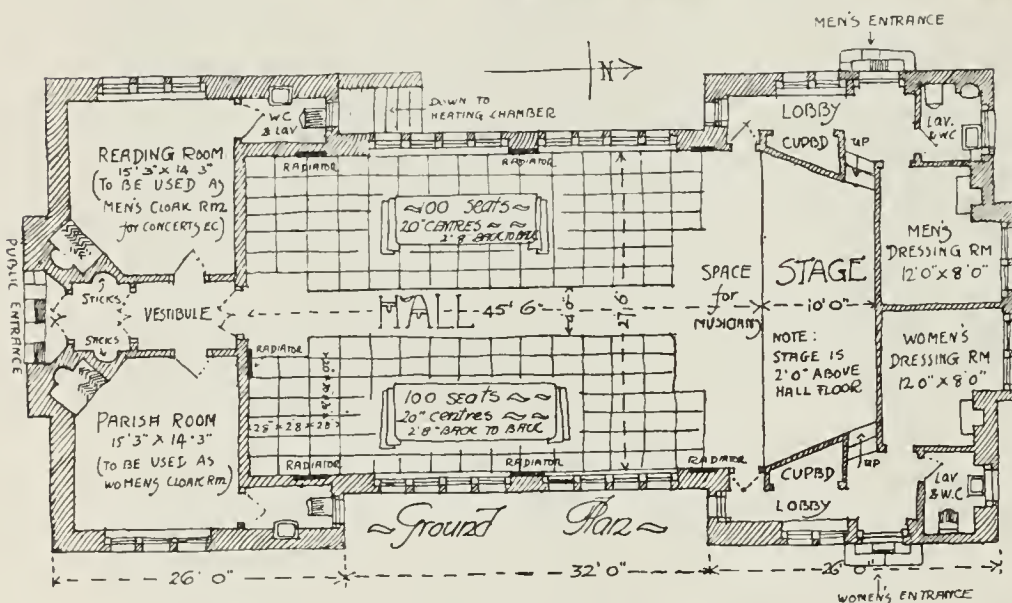 MEN'S ENTRANCE
N
DOWN TO
HEATING CHAMBER
LOBBY
CUPBD
UP
LAV.
& WC
W.C
& LAV
READING ROOM
15' 3" X 14' 3"
(TO BE USED AS
MEN'S CLOAK RM
for CONCERTS EC)
RADIATOR
RADIATOR
100 Seats
20" CENTRES
2' 8 BACK TO BACK
MEN'S
DRESSING RM
12' 0" X 8' 0"
PUBLIC ENTRANCE
STICKS
VESTIBULE
STICKS
HALL 45' 6"
4' 6"
27' 6"
SPACE
for
MUSICIANS
STAGE
10' 0"
NOTE:
STAGE IS
2' 0" ABOVE
HALL FLOOR
WOMEN'S
DRESSING RM
12' 0" X 8' 0"
RADIATOR
100 Seats
20" Centres
2' 8" BACK TO BACK
20" 20" 20"
28" 28" 28"
PARISH ROOM
15' 3" X 14' 3"
(TO BE USED AS
WOMENS CLOAK RM)
RADIATOR
RADIATOR
RADIATOR
UP
CUPBD
LOBBY
LAV
& W.C
Ground Plan
26' 0"
32' 0"
26' 0"
WOMEN'S ENTRANCE